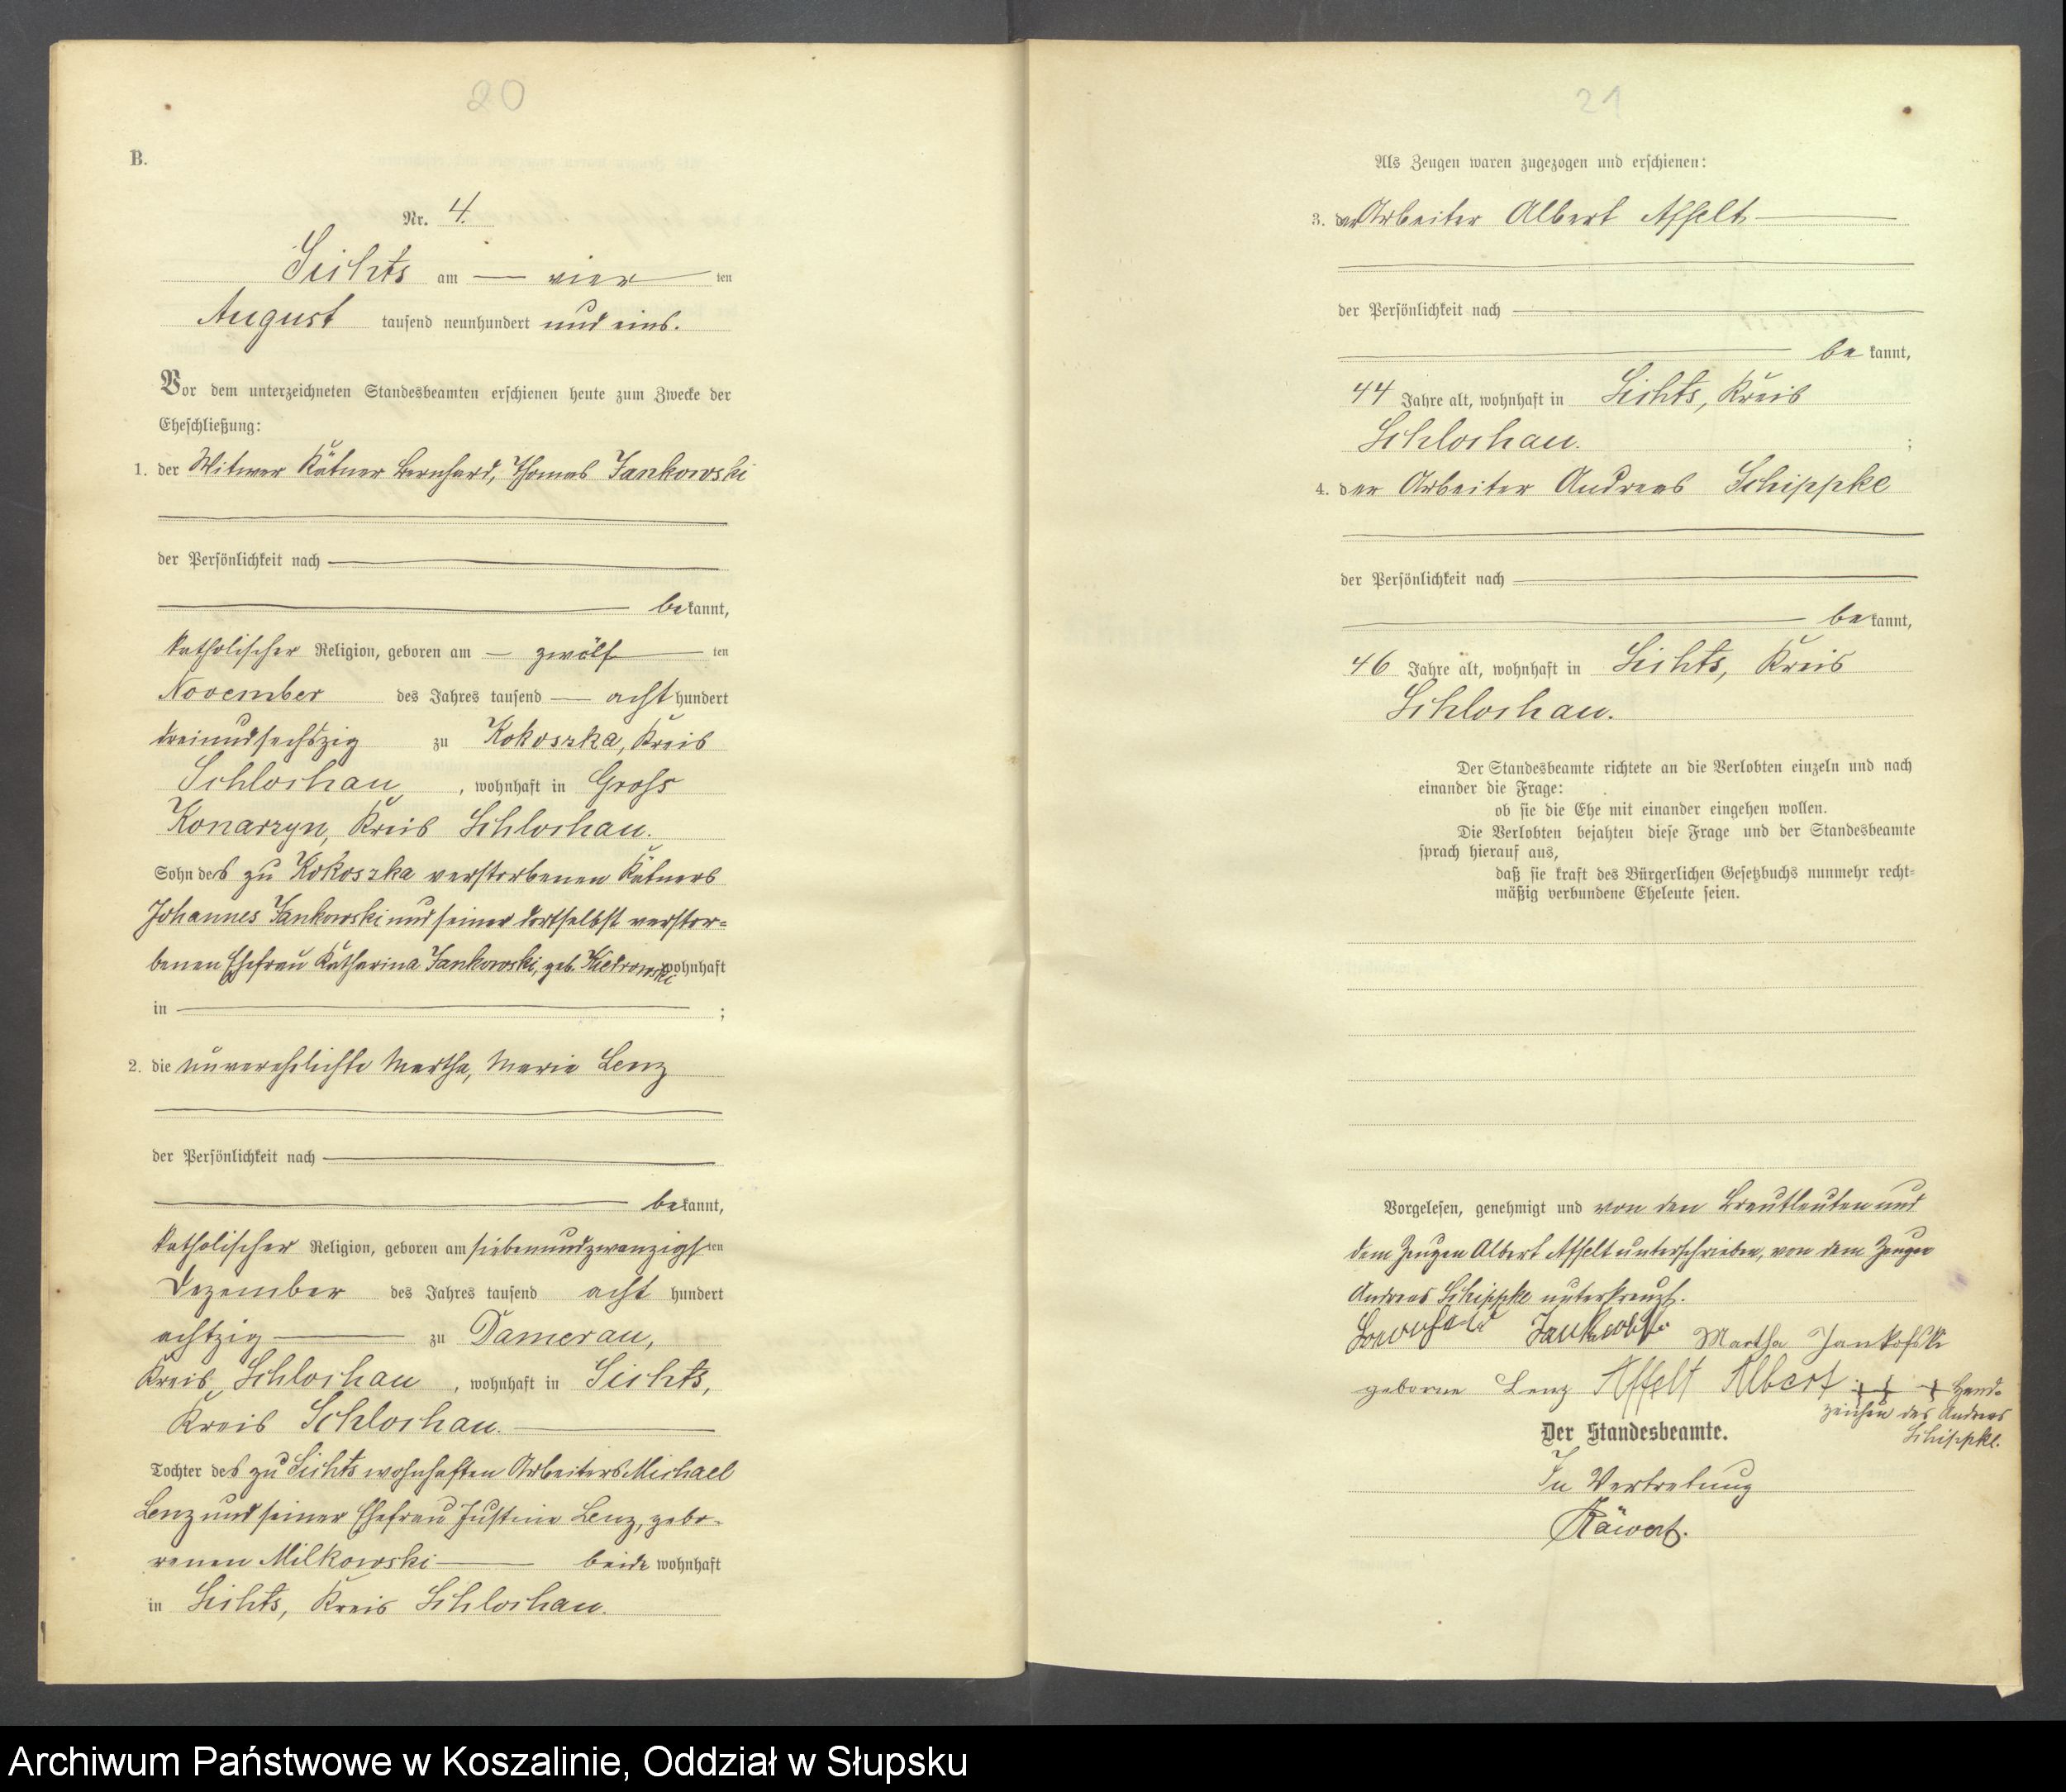 20
B.
Nr. 4.
Sichts am — vier ten
August tausend neunhundert und eins.
Vor dem unterzeichneten Standesbeamten erschienen heute zum Zwecke der
Eheschließung:
1. der Witwer Kätner Bernhard, Thomas Jankowski
der Persönlichkeit nach
bekannt,
katholischer Religion, geboren am — zwölf ten
November des Jahres tausend — acht hundert
dreiundsechszig zu Kokoszka, Kreis
Schlochau, wohnhaft in Gross
Konarzyn, Kreis Schlochau.
Sohn des zu Kokoszka verstorbenen Kätners
Johannes Jankowski und seiner dortselbst verstor=
benen Ehefrau Katharina Jankowski, geb. Kiedrowski wohnhaft
in ;
2. die unverehelichte Martha, Marie Lenz
der Persönlichkeit nach
bekannt,
katholischer Religion, geboren am siebenundzwanzigsten
Dezember des Jahres tausend acht hundert
achtzig — zu Damerau,
Kreis Schlochau, wohnhaft in Sichts,
Kreis Schlochau.
Tochter des zu Sichts wohnhaften Arbeiters Michael
Lenz und seiner Ehefrau Justine Lenz, gebo-
renen Milkowski — beide wohnhaft
in Sichts, Kreis Schlochau.
21
Als Zeugen waren zugezogen und erschienen:
3. der Arbeiter Albert Affelt
der Persönlichkeit nach
be kannt,
44 Jahre alt, wohnhaft in Sichts, Kreis
Schlochau. ;
4. der Arbeiter Andreas Schippke
der Persönlichkeit nach
bekannt,
46 Jahre alt, wohnhaft in Sichts, Kreis
Schlochau.
Der Standesbeamte richtete an die Verlobten einzeln und nach
einander die Frage:
ob sie die Ehe mit einander eingehen wollen.
Die Verlobten bejahten diese Frage und der Standesbeamte
sprach hierauf aus,
daß sie kraft des Bürgerlichen Gesetzbuchs nunmehr recht=
mäßig verbundene Eheleute seien.
Vorgelesen, genehmigt und von den Brautleuten und
dem Zeugen Albert Affelt unterschrieben, von dem Zeugen
Andreas Schippke unterkreuzt.
Bernhard Jankowski Martha Jankofski
geborne Lenz Affelt Albert +++ Hand=
zeichen des Andreas
Schippke.
Der Standesbeamte.
In Vertretung
Räwert.
Archiwum Państwowe w Koszalinie, Oddział w Słupsku